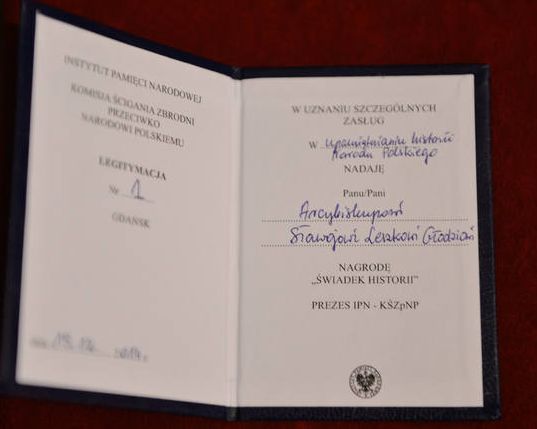 INSTYTUT PAMIĘCI NARODOWEJ
KOMISJA ŚCIGANIA ZBRODNI
PRZECIWKO
NARODOWI POLSKIEMU
LEGITYMACJA
Nr 1
GDAŃSK
W UZNANIU SZCZEGÓLNYCH
ZASŁUG
W upamiętnianiu historii
Narodu Polskiego
NADAJĘ
Panu/Pani
Arcybiskupowi
Sławojowi Leszkowi Głódziowi
NAGRODĘ
„ŚWIADEK HISTORII”
PREZES IPN - KŚZpNP